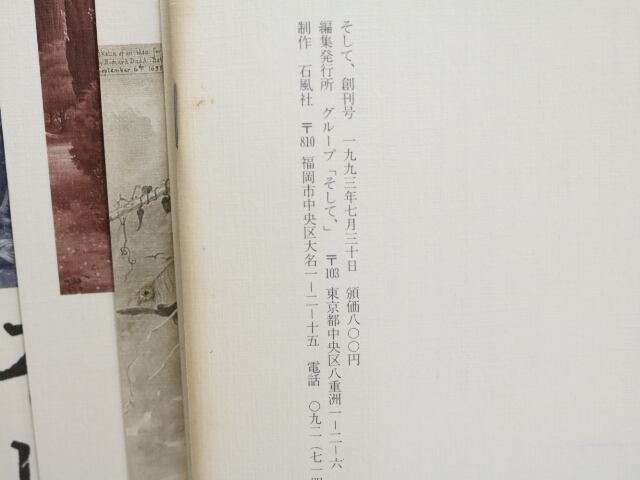 そして、創刊号　一九九三年七月三十日　頒価八〇〇円
編集発行所　グループ「そして、」　〒103 東京都中央区八重洲一－二－六
制作　石風社　〒810 福岡市中央区大名一－二－十五　電話　〇九二（七一四
September 6th